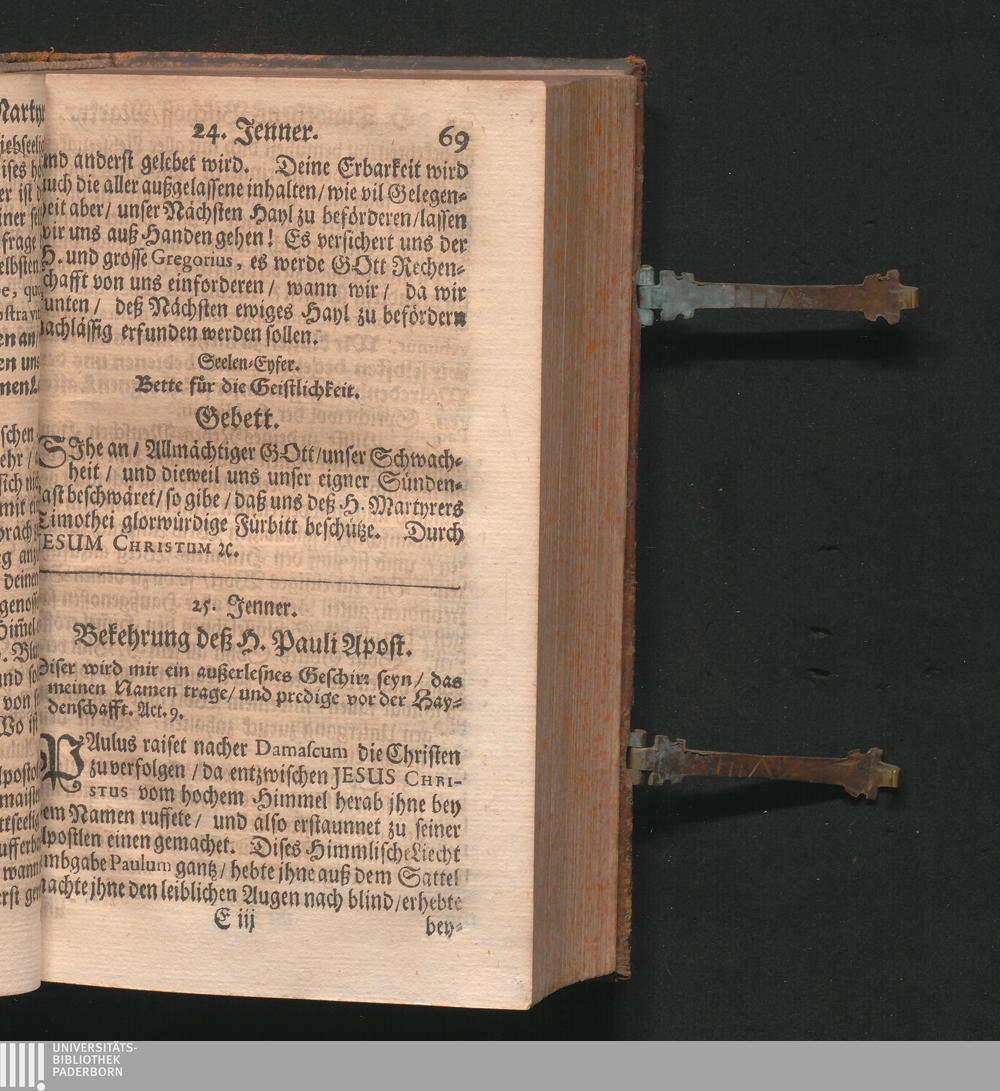 24. Jenner. 69
und anderst gelebet wird. Deine Erbarkeit wird
auch die aller außgelassene inhalten/ wie vil Gelegen-
heit aber/ unser Nächsten Hayl zu beförderen/lassen
wir uns auß Handen gehen! Es versichert uns der
H. und grosse Gregorius, es werde GOtt Rechen-
schafft von uns einforderen/ wann wir/ da wir
kunten/ deß Nächsten ewiges Hayl zu befördern
nachlässig erfunden werden sollen.
Seelen-Eyfer.
Bette für die Geistlichkeit.
Gebett.
SIhe an/ Allmächtiger GOtt/unser Schwach-
heit/ und dieweil uns unser eigner Sünden-
last beschwäret/ so gibe/ daß uns deß H. Martyrers
Timothei glorwürdige Fürbitt beschütze. Durch
JESUM CHRISTUM ꝛc.
25. Jenner.
Bekehrung deß H. Pauli Apost.
Diser wird mir ein außerlesnes Geschirꝛ seyn/ das
meinen Namen trage/ und predige vor der Hay-
denschafft. Act. 9.
PAulus raiset nacher Damascum die Christen
zuverfolgen/ da entzwischen JESUS CHRI-
STUS vom hochem Himmel herab jhne bey
dem Namen ruffete/ und also erstaunnet zu seiner
Apostlen einen gemachet. Dises Himmlische Liecht
umbgabe Paulum gantz/ hebte jhne auß dem Sattel
machte jhne den leiblichen Augen nach blind/erhebte
E iij bey-
UNIVERSITÄTS-
BIBLIOTHEK
PADERBORN